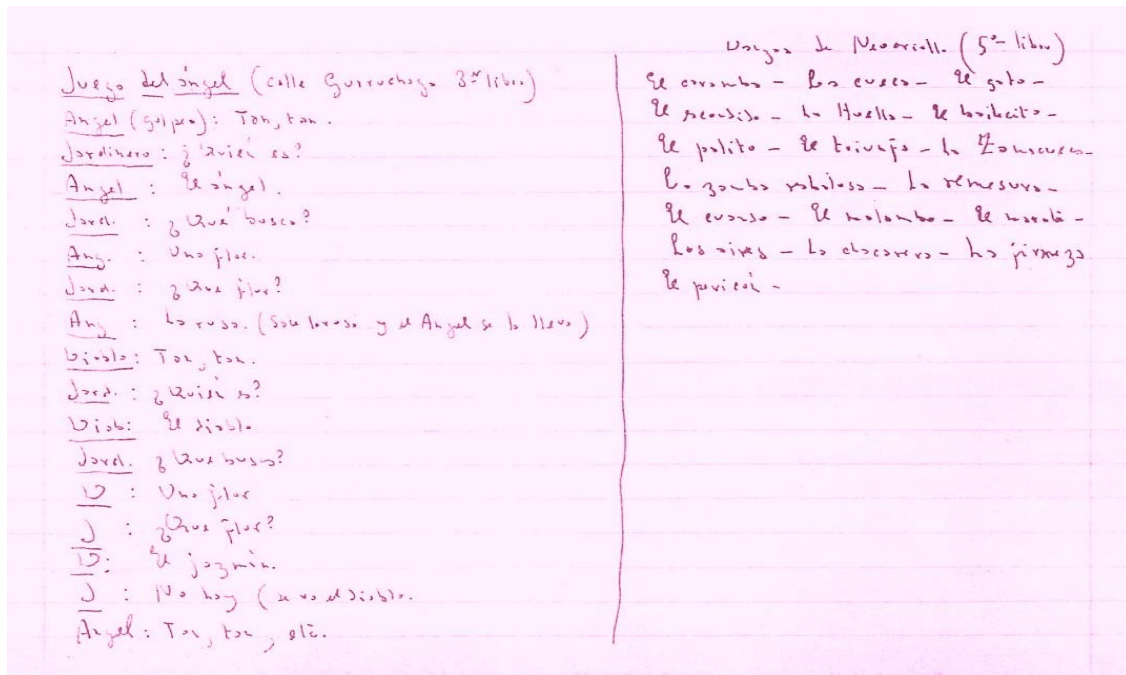 Juego del ángel (calle Gurruchaga 3er libro)
Angel (golpea): Tan, tan.
Jardinero: ¿Quién es?
Angel : El ángel.
Jard. : ¿Qué busca?
Ang. : Una flor.
Jard. : ¿Que flor?
Ang : La rosa. (Sale la rosa y el Angel se la lleva)
Diablo: Tan, tan.
Jard. : ¿Quién es?
Diab: El diablo
Jard. ¿Que busca?
D : Una flor
J : ¿Que flor?
D: El jazmin.
J : No hay (se va el Diablo.
Angel: Tan, tan, etc.
Danzas de (5º- libro)
El caramba - La cueca - El gato -
El escondido - La Huella - El bailecito -
El palito - El triunfo - La Zamacueca -
La zamba - La remesura -
El cuando - El malambo - El marote -
Los aires - La chacarera - La firmeza
El pericón -